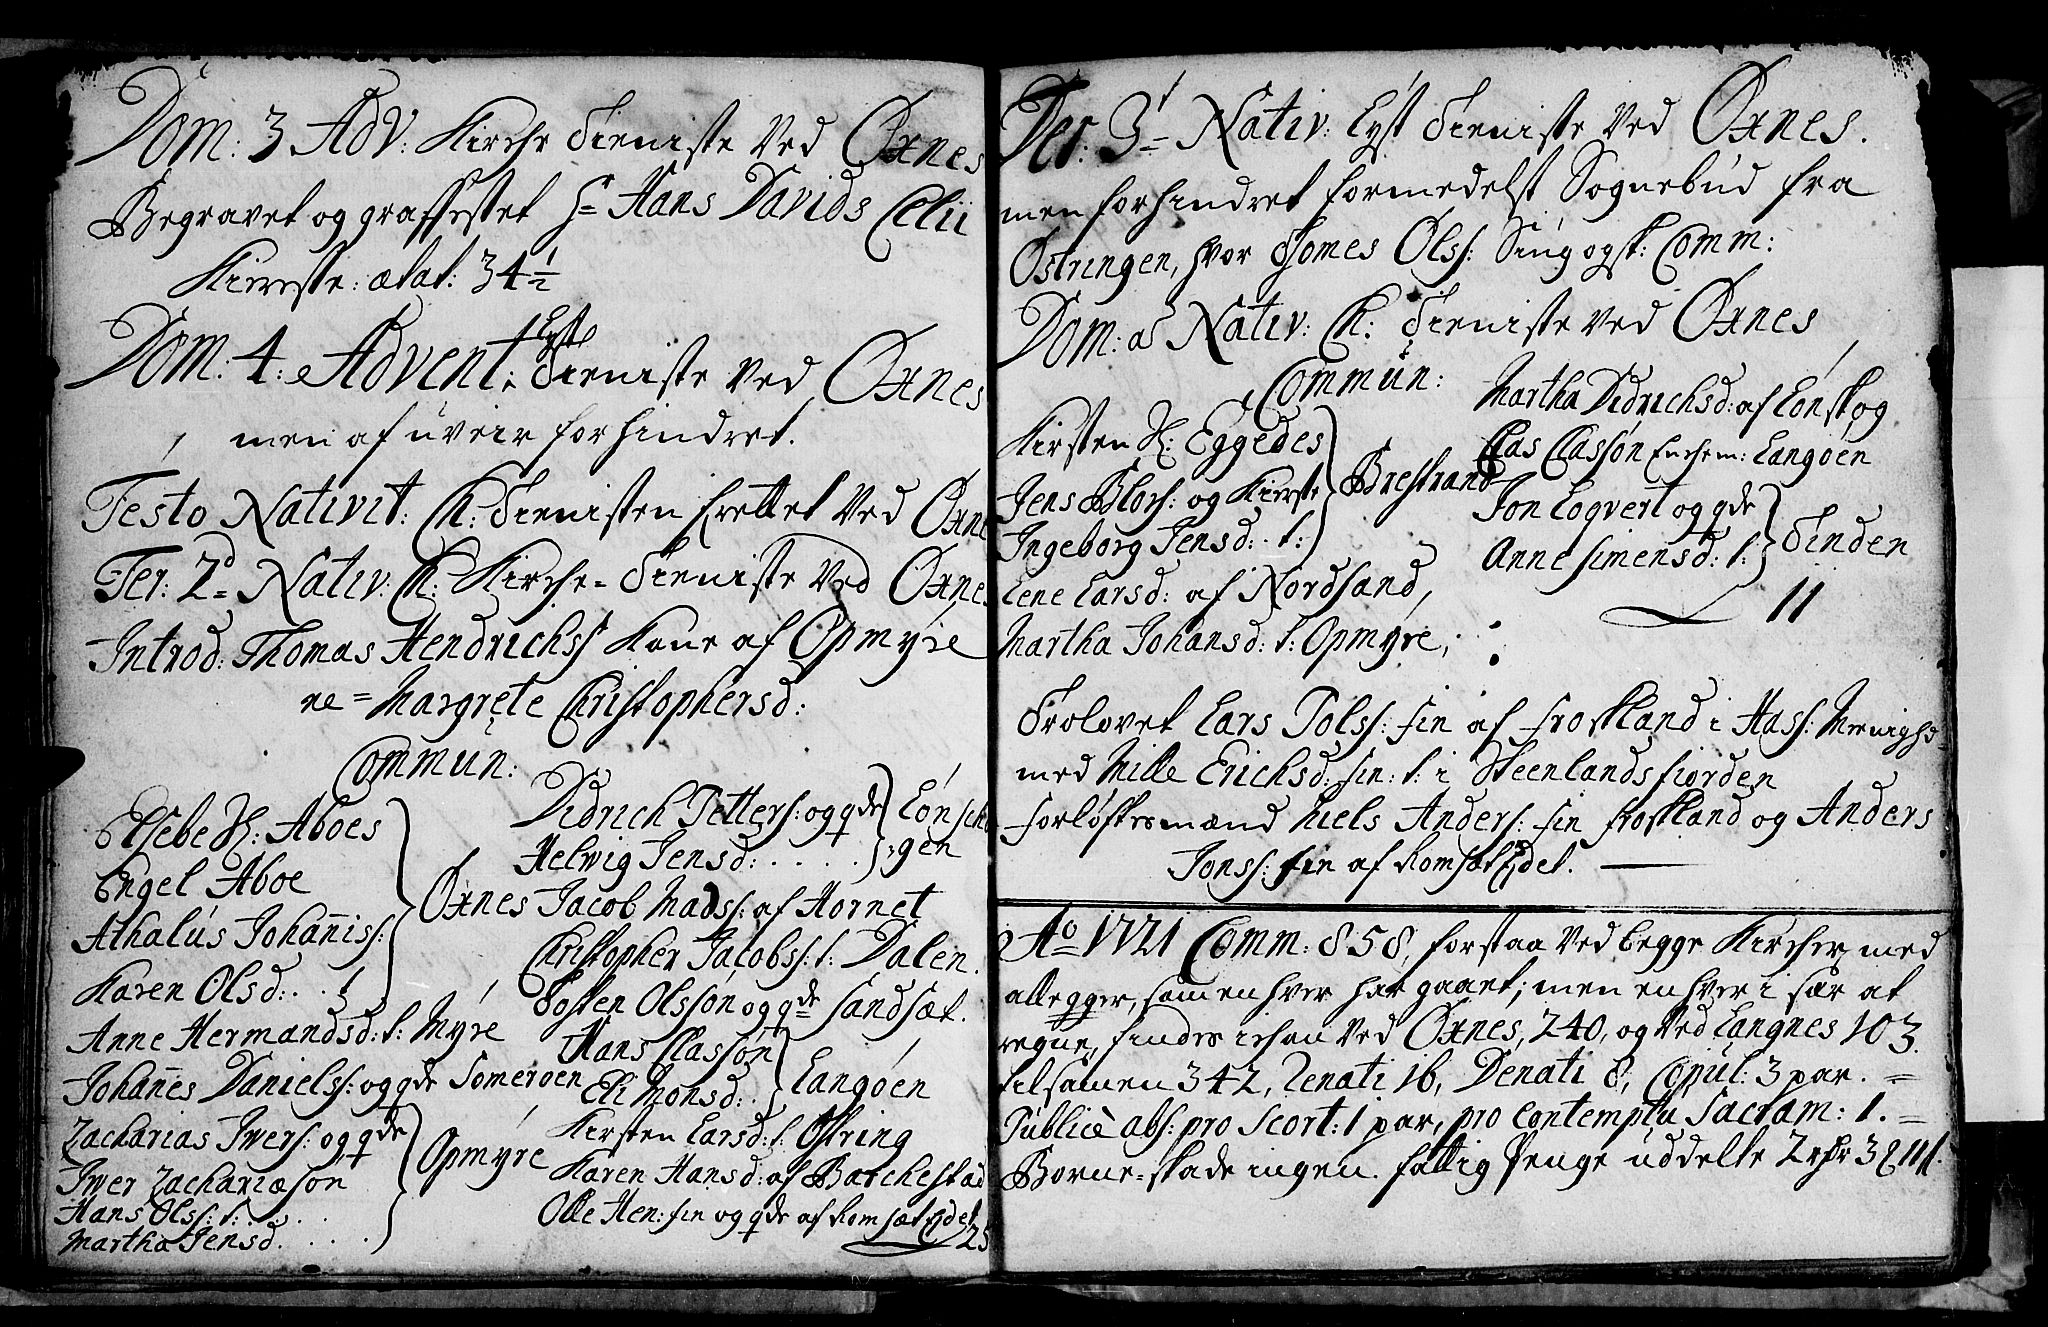 Dom: 3 Adv: Kirche Tieniste Ved Øxnes
Begravet og graffestet Sr Hans Davids Celii
Kiereste: ætat: 34 1/2
Lyst
Dom: 4: Advent: Tieniste Ved Øxnes
men af uveir forhindret.
Festo Nativit: Ch: Tienisten frettet Ved Øxne
Fer: 2d= Nativ: Ch: Kirche= Tieniste Ved Øxne
Introd: Thomas Hendrichss Kone af Opmyre
ne= Margrete Christophersd:
Commun:
Elsebe Sl: Aboes
Engel Aboe
Athalus Johanniss:
Karen Olsd: . .
Øxnes
Anne Hermandsd: t: Myre
Johannes Daniels: og qde Someroen
Zacharias Iwers: og qde
Iwer Zachariæsøn
Hans Olss: t: . . .
Martha Jensd. . . .
Opmyre
Didrich Petters: og qde
Helwig Jensd: . . . . .
Lønsko
gen
Jacob Madss: af Hornet
Christopher Jacobss: t: Dalen.
Tosten Olssøn og qde Sandsæt.
Hans Classøn
Eli Monsd: .
Langøen
Kirsten Larsd: t: Østring
Karen Hansd: af Barchestad
Olle Hen: fin og qde af Romsæt Eidet
25
Fer: 3t= Nativ: Lyst Tieniste Ved Øxnes.
men forhindret formedelst Sognebud fra
Østringen, hvor Thomes Olss: Siug ogsk: Comm:
Dom: a Nativ: Ch: Tieniste Ved Øxnes
Commun:
Kirsten Sl: Eggedes
Jens Blors: og Kierste
Ingeborg Jensd: . t:
Brestrand
Lene Larsd: af Nordsand,
Martha Johansd: t: Opmyre,
Martha Didrichsd: af Lonskog
Clas Classøn Enchem: Langøen
Jon Loqvert og qde
Anne Simensd: t:
Tinden
11
Trolovet Lars Tolss: fin af Froskland i Hass: Menighd
med Mille Erichsd: fin: t: i Steenlandsfiorden
Forløftesmænd Niels Anders: fin Froskland og Anders
Jonss: fin af Romsæt Eidet.
Ao 1721 Comm: 858, forstaa Ved begge Kircher med
allegger, som enhver har gaaet; men enhver i sær at
regne, findes ichon Ved Øxnes, 240, og Ved Langnes 103.
tilsamen 342, Renati 16, Denati 8, Copul: 3 par. =
Publicè abs: pro Scort: 1 par, pro contemptu Sacram: 1. =
Borne=skade ingen. Fattig Penge uddelte 2 rdr 3